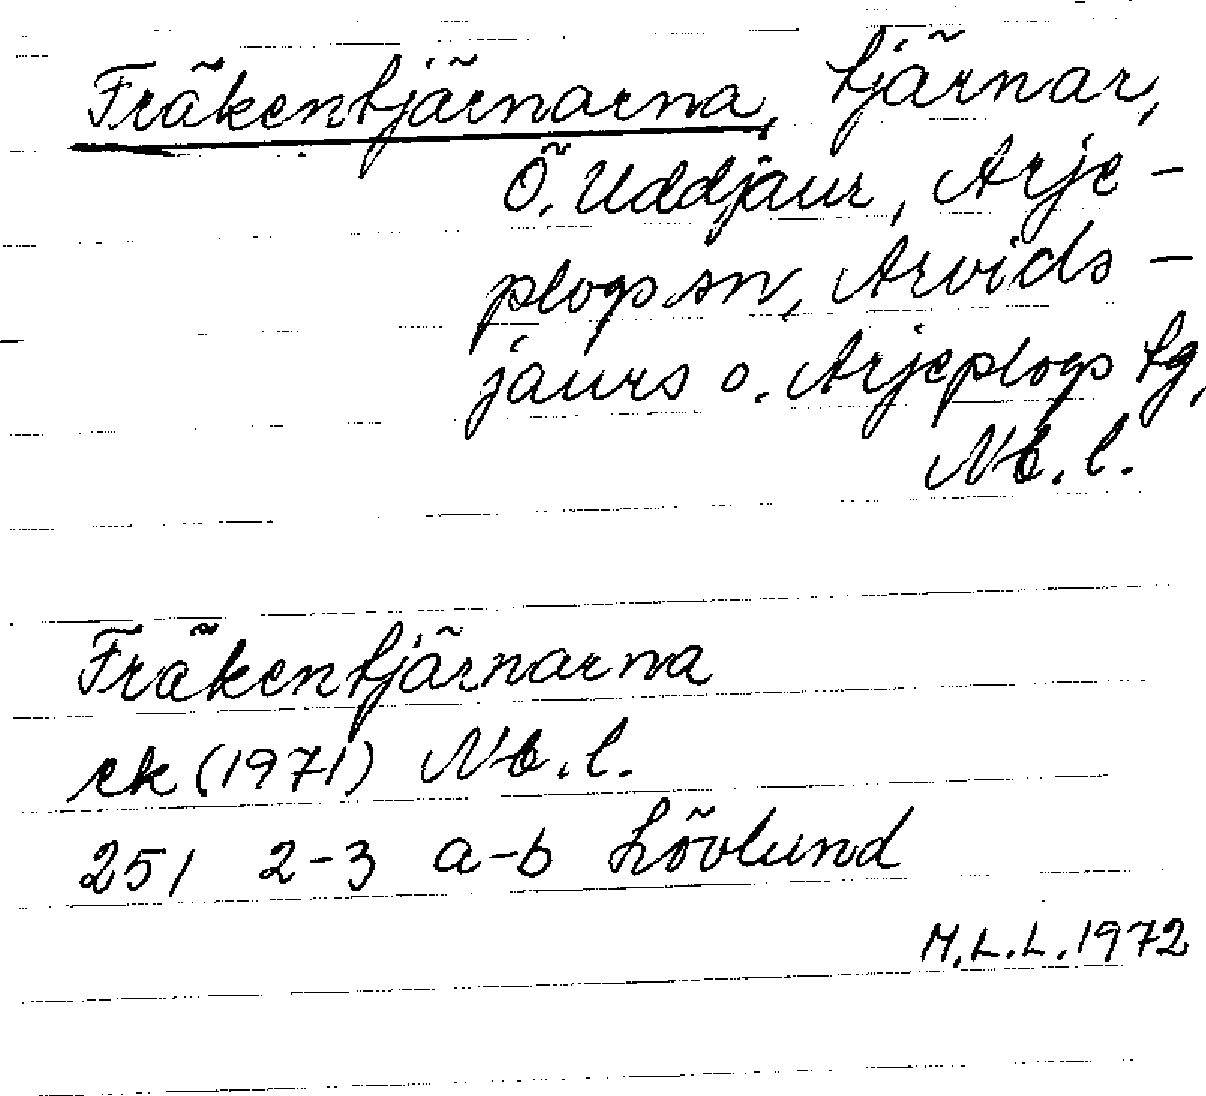 Fräkentjärnarna, tjärnar,
Ö. Uddjaur, Arje-
plogs sn, Arvids-
jaurs o. Arjeplogs tg,
Nb. l.
Fräkentjärnarna
ek (1971) Nb. l.
251 2-3 a-b Lövlund
M.L.L. 1972